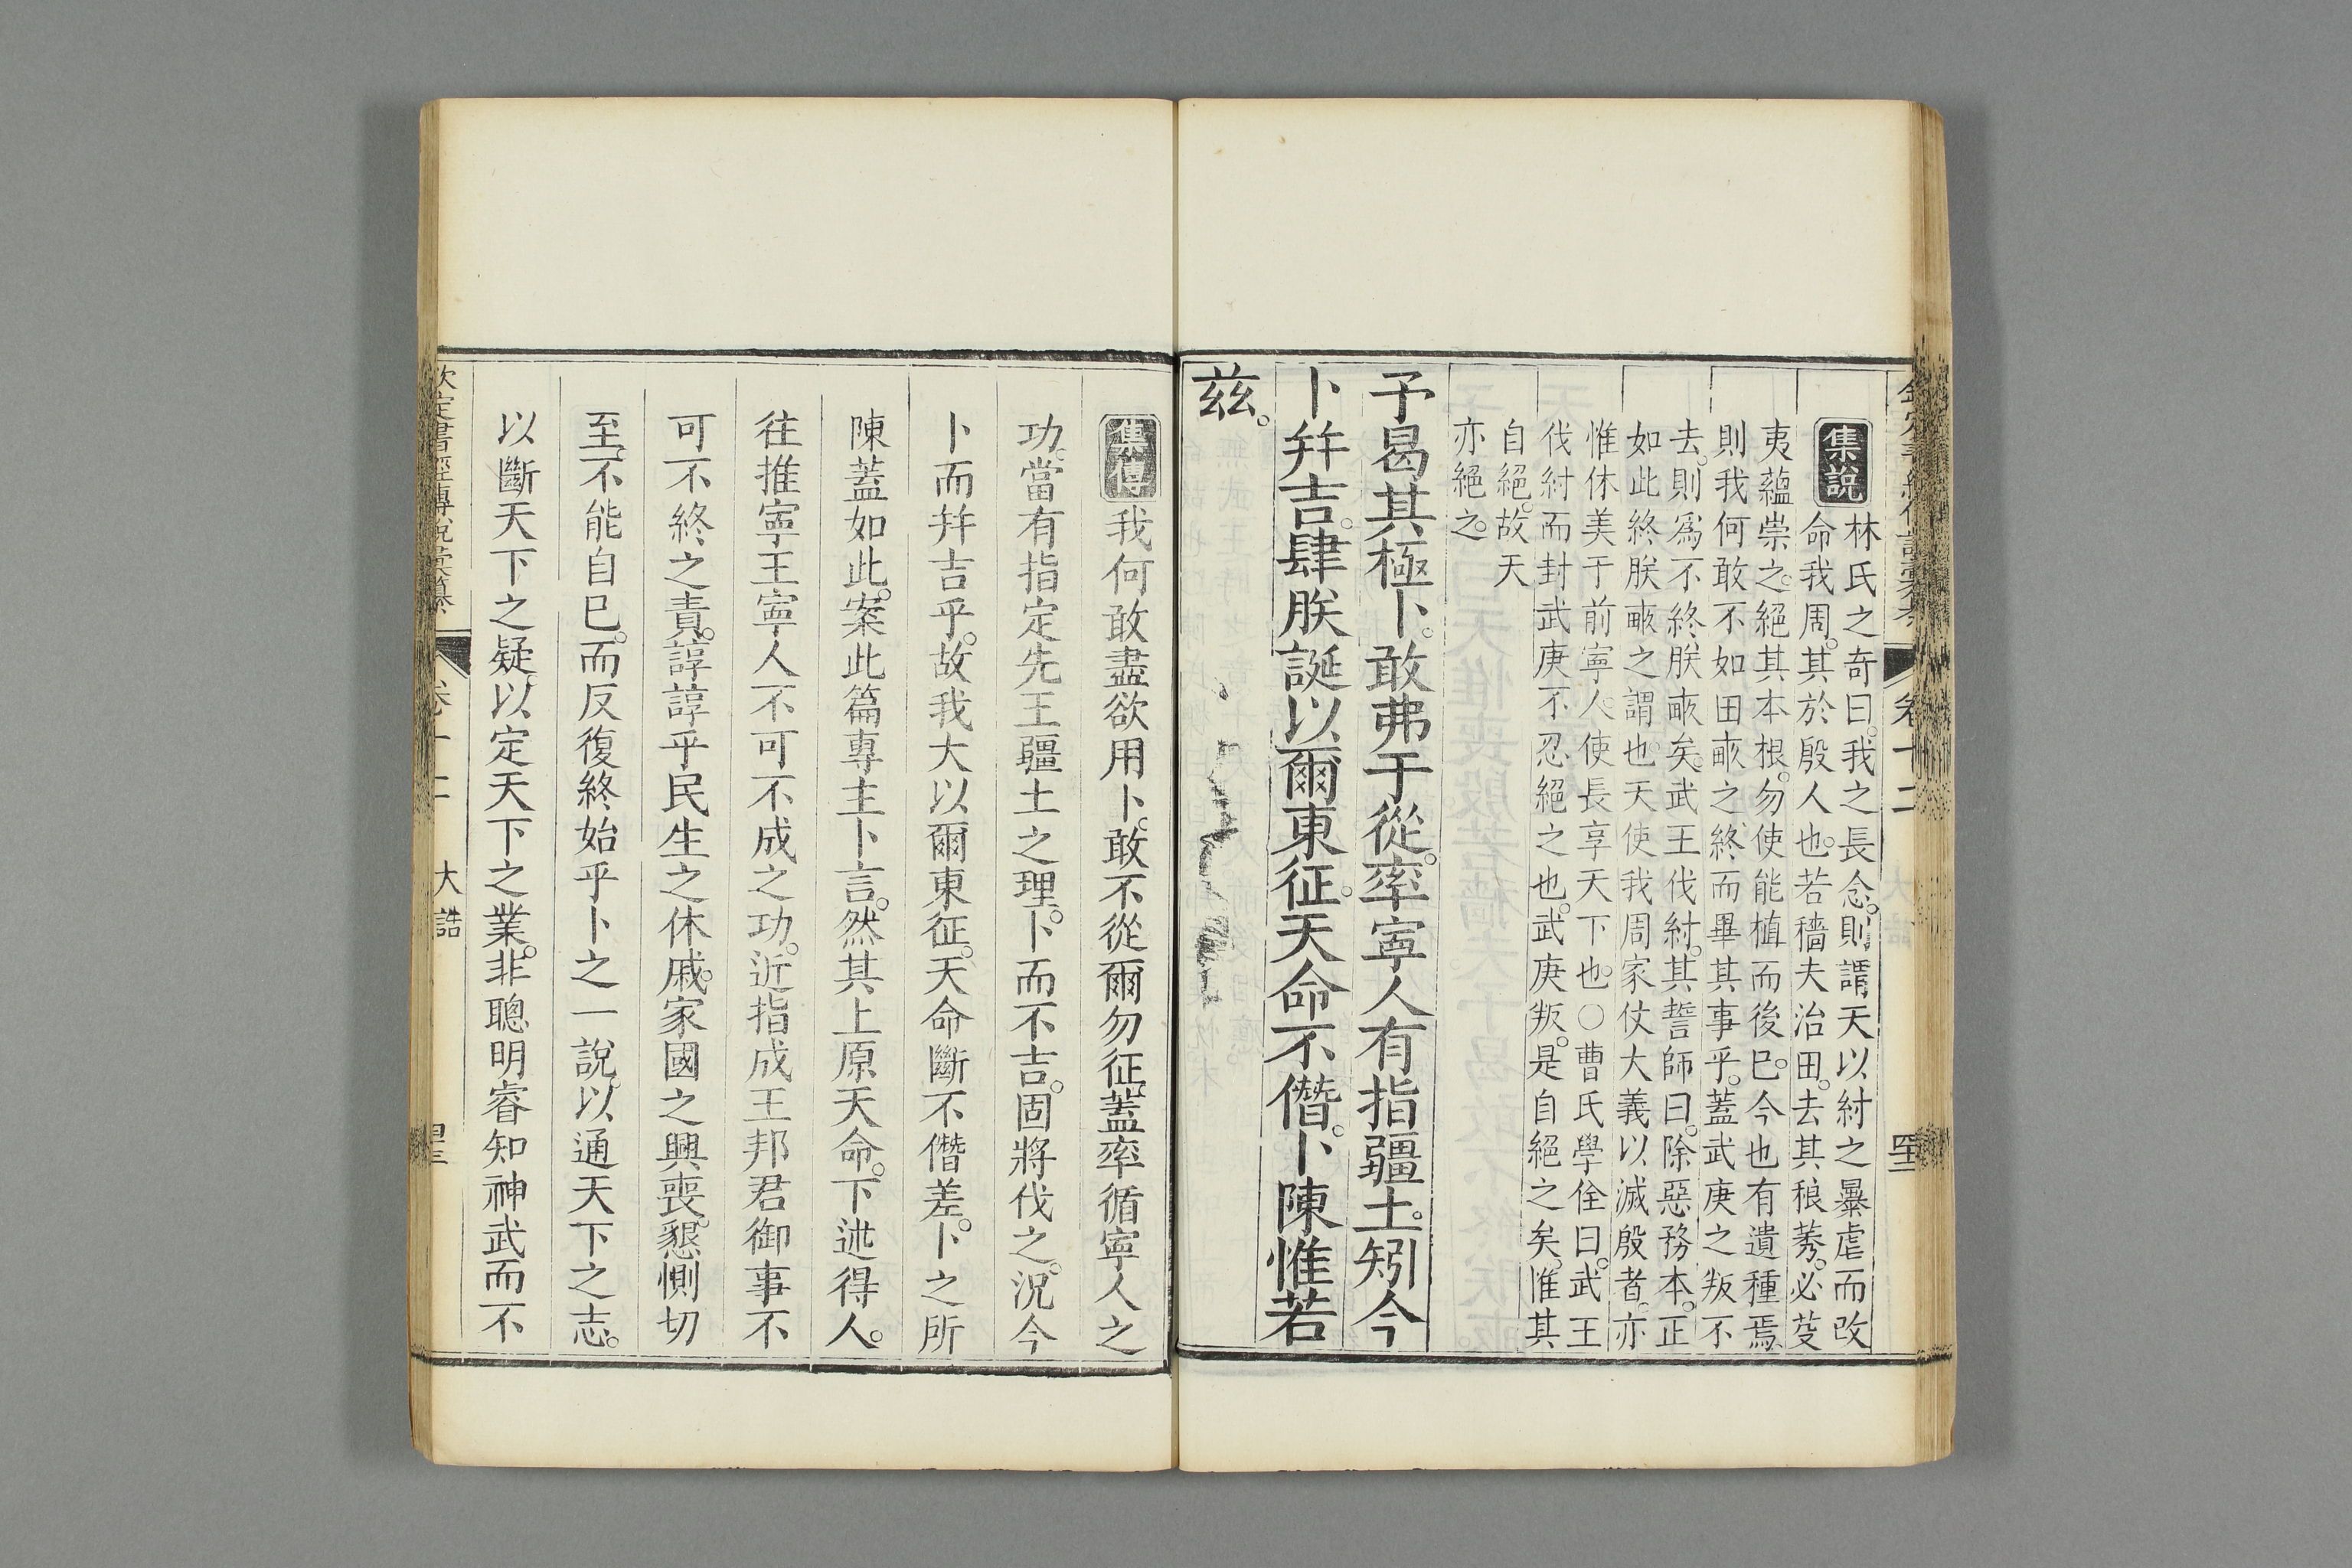 卷十二
集說
林氏之奇曰。我之長念。則謂天以紂之暴虐而改
命我周。其於殷人也。若穡夫治田。去其稂莠。必芟
夷蘊崇之。絕其本根。勿使能植而後巳。今也有遺種焉。
則我何敢不如田畝之終而畢其事乎。蓋武庚之叛不
去。則爲不終朕畝矣。武王伐紂。其誓師曰。除惡務本。正
如此終朕畝之謂也。天使我周家仗大義以滅殷者。亦
惟休美于前寧人。使長享天下也。○曹氏學佺曰。武王
伐紂而封武庚不忍絕之也。武庚叛。是自絕之矣。惟其
自絕。故天
亦絕之。
予曷其極卜。敢弗于從。率寧人有指疆土。矧今
卜幷吉。肆朕誕以爾東征。天命不僭。卜陳惟若
茲。
集傳
我何敢盡欲用卜。敢不從爾勿征。蓋率循寧人之
功。當有指定先王疆土之理。卜而不吉。固將伐之。況今
卜而幷吉乎。故我大以爾東征。天命斷不僭差。卜之所
陳蓋如此。案此篇專主卜言。然其上原天命。下述得人。
往推寧王寧人不可不成之功。近指成王邦君御事不
可不終之責。諄諄乎民生之休戚。家國之興喪。懇惻切
至。不能自巳。而反復終始乎卜之一說。以通天下之志。
以斷天下之疑。以定天下之業。非聰明睿知神武而不
欽定書經傳說彙纂
卷十二
大誥